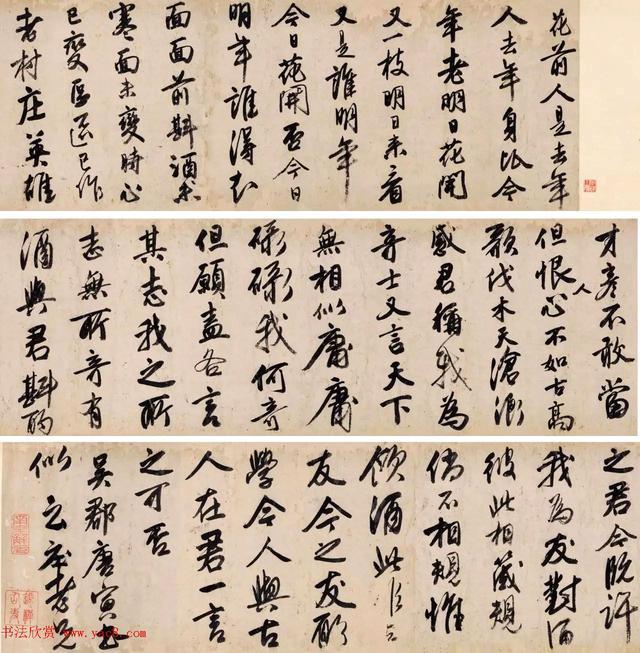 花前人是去年
人去年身比今
年老明日花開
又一枝明日来看
又是誰明年
今日花開否今日
明年誰得知
面面前斟酒未
寒面未變時心
已變區區已作
老村庄英雄
才彥不敢當
但恨心人不如古高
歌伐木天滄浪
感君稱我為
奇士又言天下
無相似庸庸
碌碌我何奇
但願盡各言
其志我之所
志無所奇有
酒與君斟酌
之君今既許
我為友對酒
彼此相箴規
倘不相規惟
飲酒此
友今之友
學今人與古
人在君一言
之可否
吳郡唐寅書
似立老兄
书法欣赏 www.yac8.com